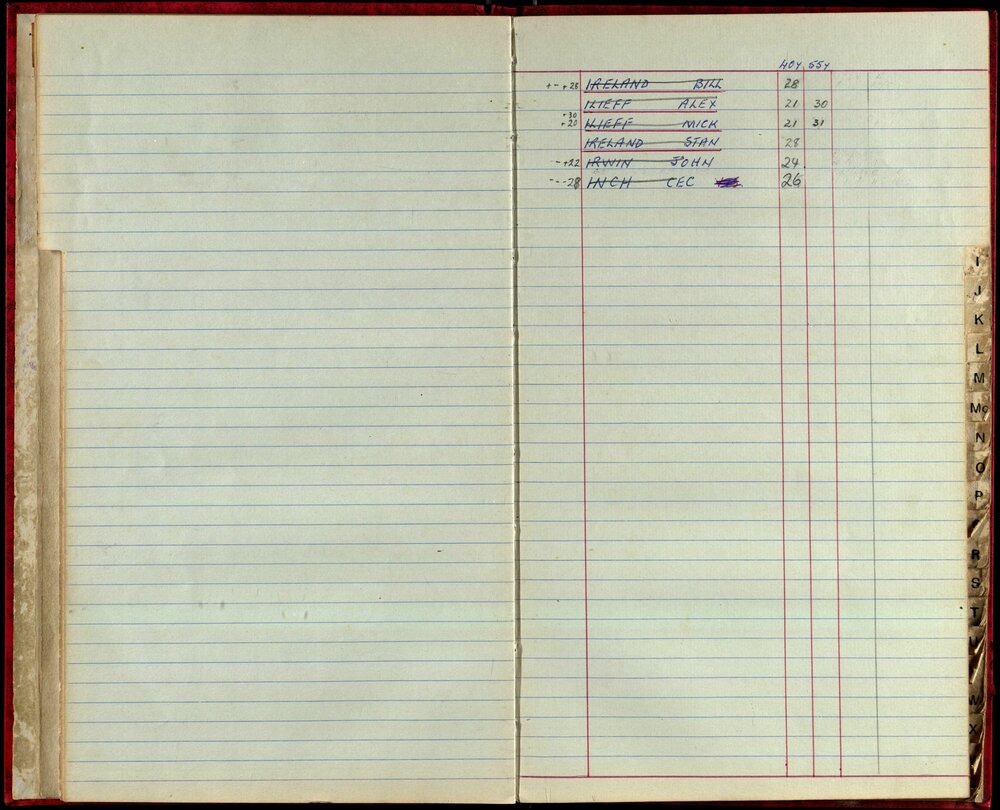 40Y 55Y
+ - + 28 IRELAND BILL 28
ILIEFF ALEX 21 30
+30
+20 ILIEFF MICK 21 31
IRELAND STAN 28
- +22 IRWIN JOHN 24
- - - 28 INCH CEC 26
I
J
K
L
M
Mc
N
O
P
R
S
T
W
X